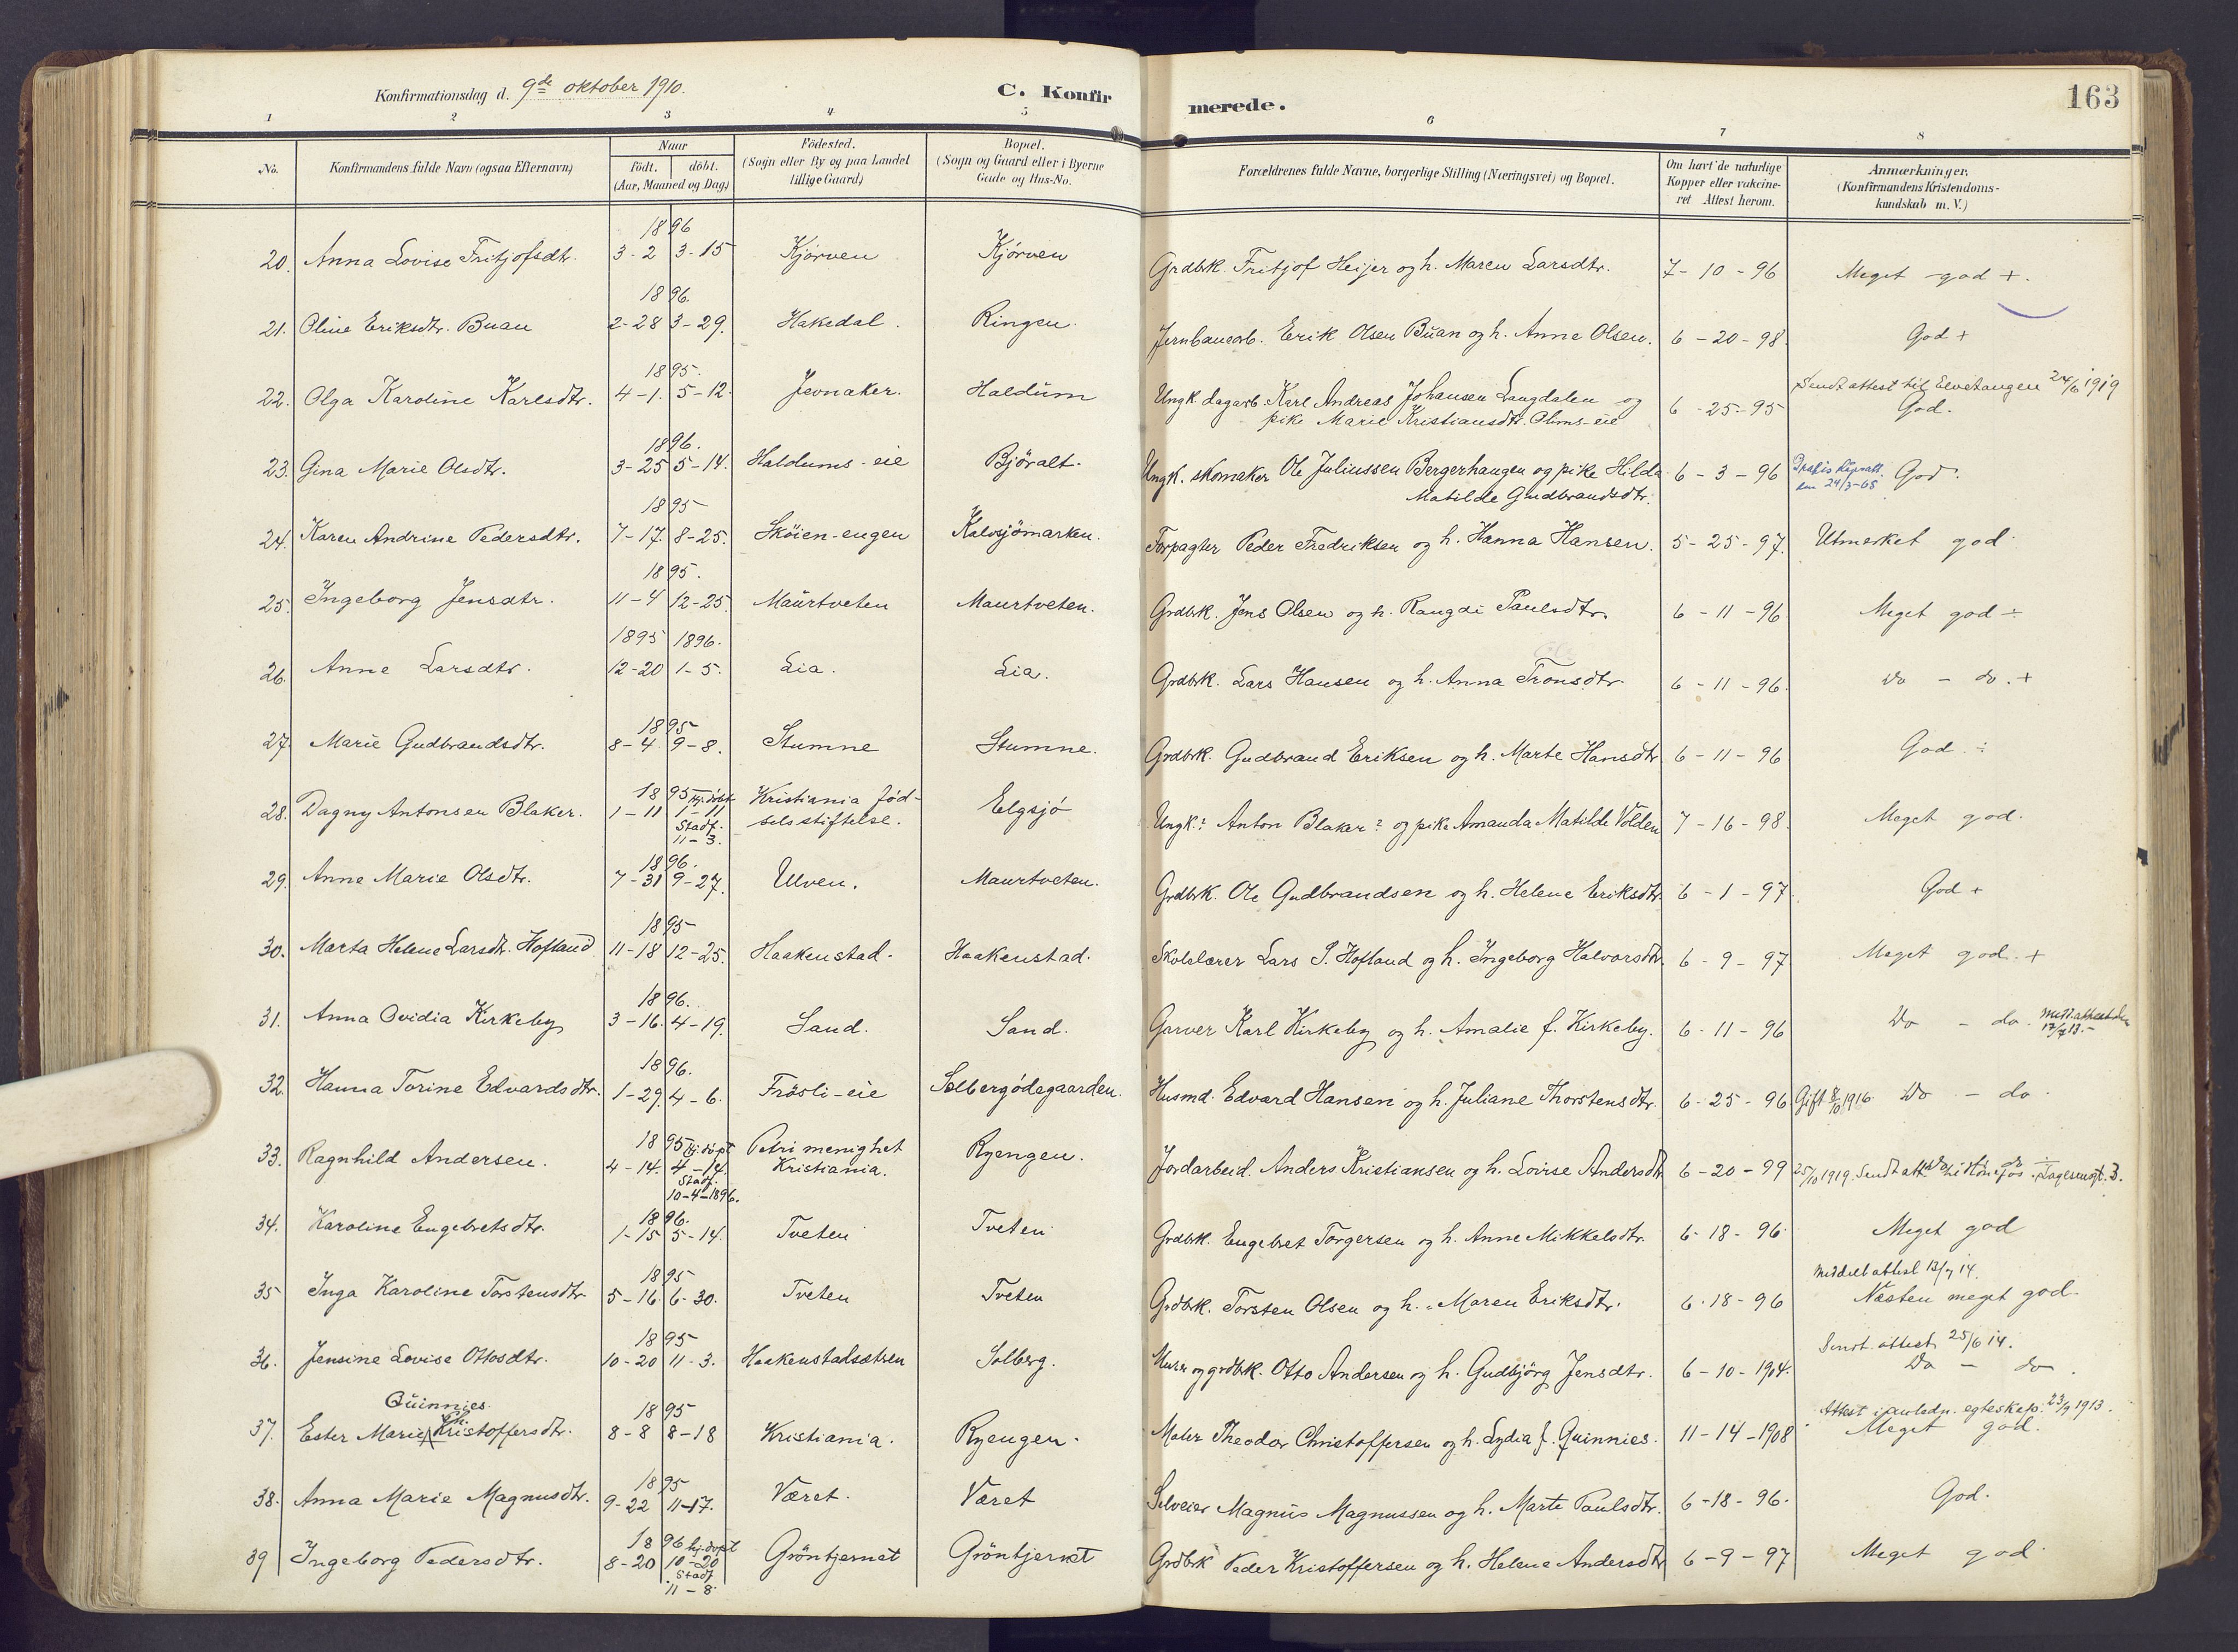 Konfirmationsdag d. 9de oktober 1910. C. Konfirmerede. 163
1 2 3 4 5 6 7 8
No. Konfirmandens fulde Navn (ogsaa Efternavn) Naar født. døbt. (Aar, Maaned og Dag) Fødested. (Sogn eller By og paa Landet tillige Gaard) Bopæl. (Sogn og Gaard eller i Byerne Gade og Hus-No. Forældrenes fulde Navne, borgerlige Stilling (Næringsvei) og Bopæl. Om havt de naturlige Kopper eller vakcineret Attest herom. Anmærkninger. (Konfirmandens Kristendomskundskab m. V.)
1896
20. Anna Lovise Fritjofsdtr. 3-2 3-15 Kjørven Kjørven Grdbrk. Fritjof Heijer og h. Maren Larsdtr. 7-10-96 Meget god +.
1896.
21. Oline Eriksdtr. Buan 2-28 3-29. Hakedal. Ringen. Jernbanearb. Erik Olsen Buan og h. Anne Olsen. 6-20-98. God +
1895. Sendt attest til Elvetangen 24/6 1919
22. Olga Karoline Karlsdtr. 4-1. 5-12. Jevnaker. Haldum Ungk. dagarb. Karl Andreas Johansen Langdalen og 6-25-95 God.
pike Marie Kristiansdtr. Olims-eie
1896.
23. Gina Marie Olsdtr. 3-25 5-14. Haldums-eie Björalt. Ungk. skomaker Ole Juliussen Bergerhaugen og pike Hilda 6-3-96 God.
Matilde Gudbrandsdtr. den 24/3-65
1895
24. Karen Andrine Pedersdtr. 7-17. 8-25. Sköien-engen Kalvsjömarken. Forpagter Peder Fredriksen og h. Hanna Hansen. 5-25-97. Utmerket god
1895.
25. Ingeborg Jensdtr. 11-4 12-25. Maurtveten Maurtveten. Grdbrk. Jens Olsen og h. Rangdi Paulsdtr. 6-11-96. Meget god ÷
1895 1896.
26. Anne Larsdtr. 12-20 1-5. Lia. Lia. Grdbrk. Lars Hansen og h. Anna Tronsdtr. 6-11-96. do - do. +
1895
27. Marie Gudbrandsdtr. 8-4 9-8. Stumne Stumne. Grdbrk. Gudbrand Eriksen og h. Marte Hansdtr 6-11-96 God. ÷
1895 hj. döbt Kristiania fød-
28. Dagny Antonsen Blaker. 1-11 1-11 selsstiftelse. Elgsjö Ungk.? Anton Blaker? og pike Amanda Matilde Volden 7-16-98. Meget god.
Stadf.
11-3.
1896.
29. Anne Marie Olsdtr. 7-31 9-27. Ulven. Maurtveten. Grdbrk. Ole Gudbrandsen og h. Helene Eriksdtr. 6-1-97. God +
1895
30. Marta Helene Larsdtr. Hofland 11-18 12-25. Haakenstad. Haakenstad. Skolelærer Lars P. Hofland og h. Ingeborg Halvorsdtr. 6-9-97 Meget god. +
1896.
31. Anna Ovidia Kirkeby 3-16. 4-19. Sand. Sand. Garver Karl Kirkeby og h. Amalie f. Kirkeby. 6-11-96 Do - do.
1896.
32. Hanna Torine Edvardsdtr. 1-29. 4-6. Frösli-eie Solbergödegaarden. Husmd. Edvard Hansen og h. Juliane Thorstensdtr. 6-25-96 Gift 8/10 1916. Do - do.
1895 hj. döpt Petri menighet
33. Ragnhild Andersen. 4-14. 4-14. Kristiania. Ryengen. Jordarbeid. Anders Kristiansen og h. Lovise Andersdtr. 6-20-99 25/10 1919. Sendt att.
Stadf.
10-4-1896.
1896.
34. Karoline Engebretsdtr. 1-15 5-14. Tveten Tveten Grdbrk. Engebret Torgersen og h. Anne Mikkelsdtr. 6-18-96 Meget god
1895 Meddelt attest 13/7 14.
35 Inga Karoline Torstensdtr. 5-16. 6-30. Tveten Tveten Grdbrk. Torsten Olsen og h. Maren Eriksdtr. 6-18-96 Næsten meget god.
1895 Sendt attest 25/6 14.
36. Jensine Lovise Ottosdtr. 10-20 11-3. Haakenstadsætren Solberg. Murer og grdbrk. Otto Andersen og h. Gudbjörg Jensdtr. 6-10-1904. Do - do.
Quinnies. Ch. 1895 Attest i anledn. egteskap. 23/9 1913.
37. Ester Marie Kristoffersdtr. 8-8 8-18 Kristiania. Ryengen. Maler Theodor Christoffersen og h. Lydia f. Quinnies. 11-14-1908 Meget god.
1895
38. Anna Marie Magnusdtr. 9-22 11-17. Været. Været Selveier Magnus Magnussen og h. Marte Paulsdtr. 6-18-96. God.
1896 hj. döpt
39 Ingeborg Pedersdtr. 8-20 10-20 Gröntjernet Gröntjernet Grdbrk Peder Kristoffersen og h. Helene Andersdtr 6-9-97 Meget god
Stadf
11-8.